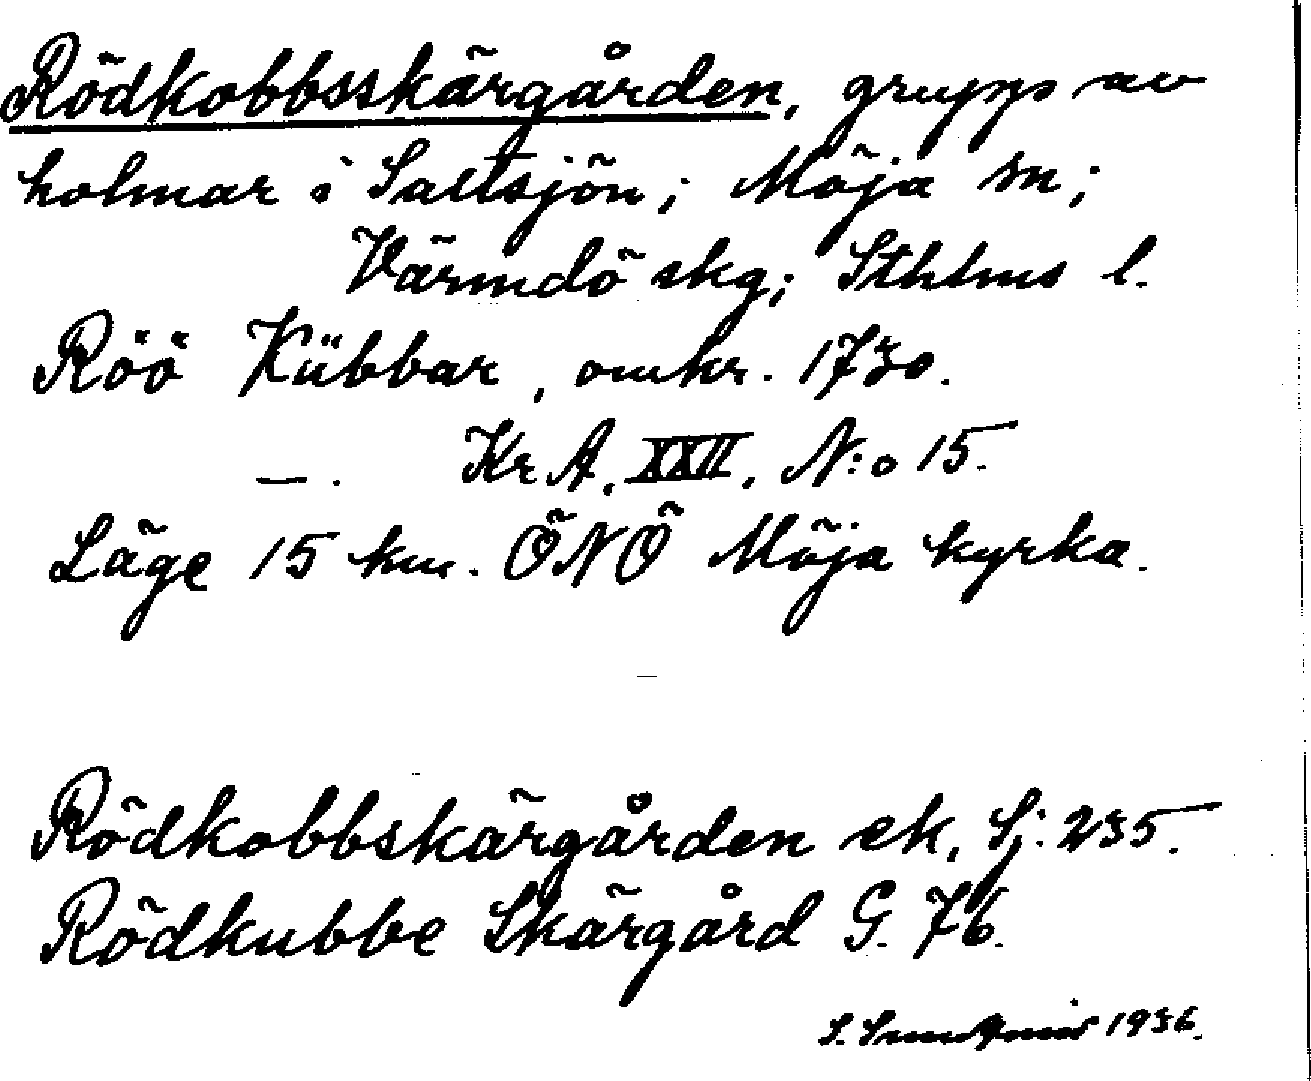 Rödkobbsskärgården, grupp av
holmar i Saltsjön; Möja sn;
Värmdö skg; Sthlms l.
Röö Kübbar, omkr. 1730.
—. Kr A, XXII, N:o 15.
Läge 15 km. ÖNÖ Möja kyrka.
Rödkobbskärgården ek, Sj: 235.
Rödkubbe Skärgård G. 76.
S. 1936.